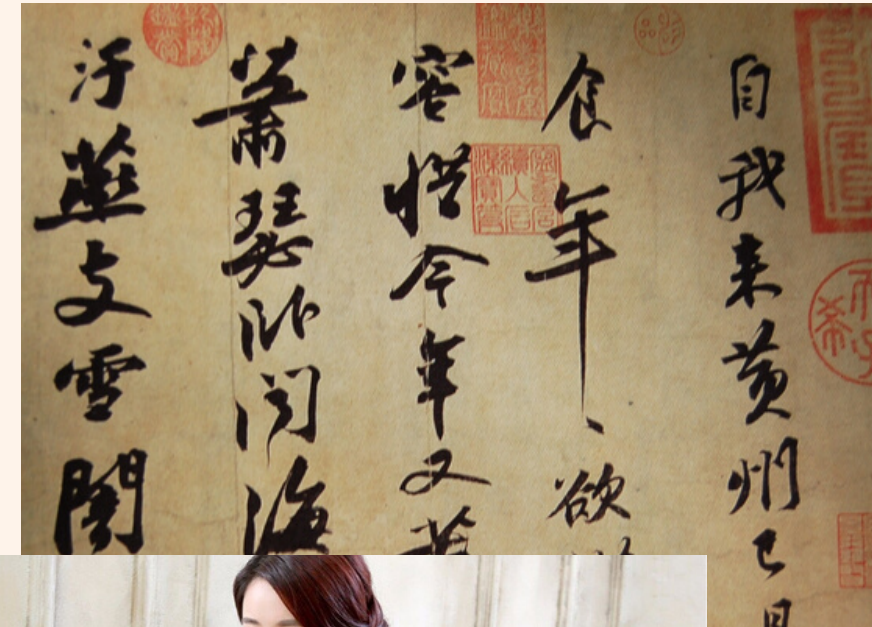 自我來黃州已
食年、欲
容惜今年又苦
蕭瑟臥聞海
汙燕支雪闇